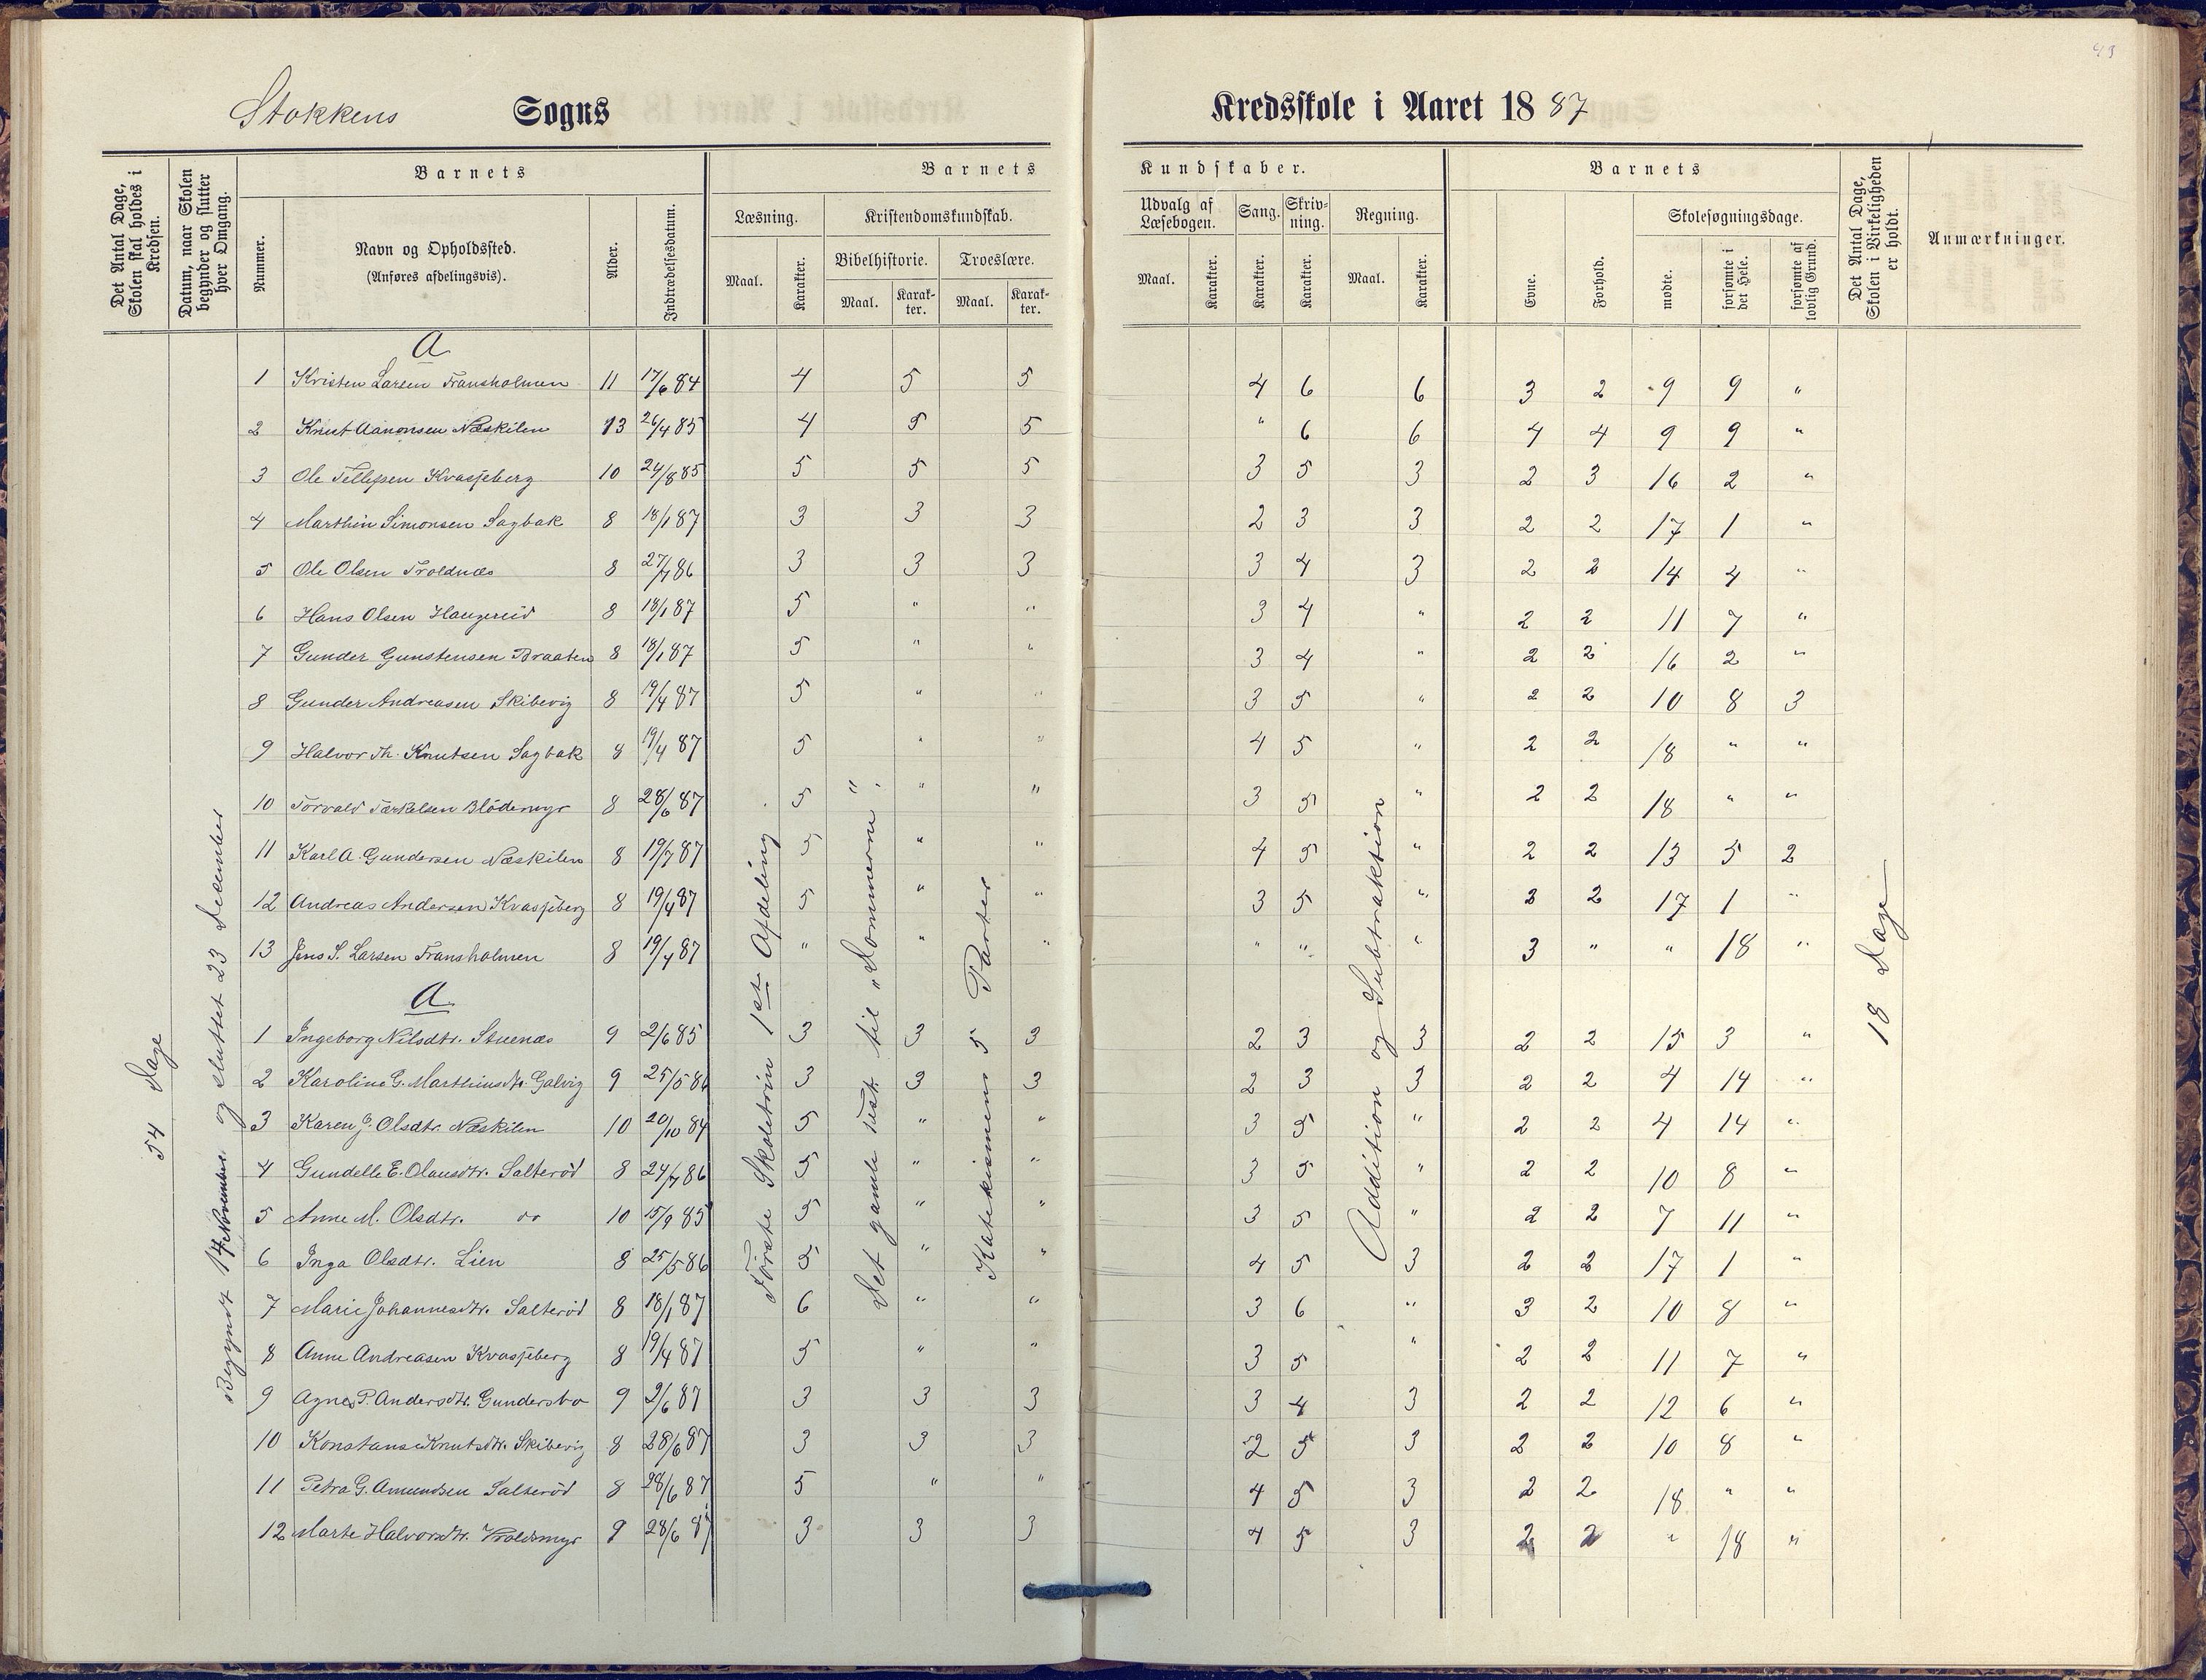 43
Stokkens Sogns Kredsskole i Aaret 1887
Det Antal Dage, Skolen skal holdes i Kredsen.
Datum, naar Skolen begynder og slutter hver Omgang.
Barnets
Nummer.
Navn og Opholdssted.
(Anføres afdelingsvis).
Alder.
Indtrædelsesdatum.
Barnets Kundskaber.
Læsning.
Maal. Karakter.
Kristendomskundskab.
Bibelhistorie. Troeslære.
Maal. Karakter. Maal. Karakter.
Udvalg af Læsebogen.
Maal. Karakter.
Sang. Karakter.
Skrivning. Karakter.
Regning.
Maal. Karakter.
Barnets
Evne. Forhold.
Skolesøgningsdage.
mødte. forsømte i det Hele. forsømte af lovlig Grund.
Det Antal Dage, Skolen i Virkeligheden er holdt.
Anmærkninger.
54 Dage
Begyndt 14 November og sluttet 23 December
Første Skoletrin 1ste Afdeling
Det gamle Test. til „Dommerne"
Katekismens 5 Parter
Addition og Subtraktion
18 Dage
A
1 Kristen Larsen Fransholmen 11 17/6 84 4 5 5 4 6 6 3 2 9 9 "
2 Knut Aanonsen Næskilen 13 26/4 85 4 5 5 " 6 6 4 4 9 9 "
3 Ole Tellefsen Kvasjeberg 10 24/8 85 5 5 5 3 5 3 2 3 16 2 "
4 Marthin Simonsen Sagbak 8 18/1 87 3 3 3 2 3 3 2 2 17 1 "
5 Ole Olsen Troldnæs 8 27/7 86 3 3 3 3 4 3 2 2 14 4 "
6 Hans Olsen Haugereid 8 18/1 87 5 " " 3 4 " 2 2 11 7 "
7 Gunder Gunstensen Braaten 8 18/1 87 5 " " 3 4 " 2 2 16 2 "
8 Gunder Andreasen Skibevig 8 19/4 87 5 " " 3 5 " 2 2 10 8 3
9 Halvor Th. Knutsen Sagbak 8 19/4 87 5 " " 4 5 " 2 2 18 " "
10 Torvald Tærkelsen Blödemyr 8 28/6 87 5 " " 3 5 " 2 2 18 " "
11 Karl A. Gundersen Næskilen 8 19/7 87 5 " " 4 5 " 2 2 13 5 2
12 Andreas Andersen Kvasjeberg 8 19/4 87 5 " " 3 5 " 3 2 17 1 "
13 Jens S. Larsen Fransholmen 8 19/4 87 " " " " " " 3 " " 18 "
A
1 Ingeborg Nilsdtr. Stuenæs 9 2/6 85 3 3 3 2 3 3 2 2 15 3 "
2 Karoline G. Marthinsdtr. Galvig 9 25/5 86 3 3 3 2 3 3 2 2 4 14 "
3 Karen J. Olsdtr. Næskilen 10 20/10 84 5 " " 3 5 " 2 2 4 14 "
4 Gundelle E. Olausdtr. Salteröd 8 24/7 86 5 " " 3 5 " 2 2 10 8 "
5 Anne M. Olsdtr. do 10 15/9 85 5 " " 3 5 " 2 2 7 11 "
6 Inga Olsdtr. Lien 8 25/5 86 5 " " 4 5 3 2 2 17 1 "
7 Marie Johannesdtr. Salteröd 8 18/1 87 6 " " 3 6 " 3 2 10 8 "
8 Anne Andreasen Kvasjeberg 8 19/4 87 5 " " 3 5 " 2 2 11 7 "
9 Agnes P. Andersdtr. Gundersbo 9 2/6 87 3 3 3 3 4 3 2 2 12 6 "
10 Konstanse Knutsdtr. Skibevig 8 28/6 87 3 3 3 2 5 3 2 2 10 8 "
11 Petra G. Amundsen Salteröd 8 28/6 87 5 " " 4 5 3 2 2 18 " "
12 Marte Halvorsdtr. Vroldsmyr 9 28/6 87 3 3 3 4 5 3 2 2 " 18 "